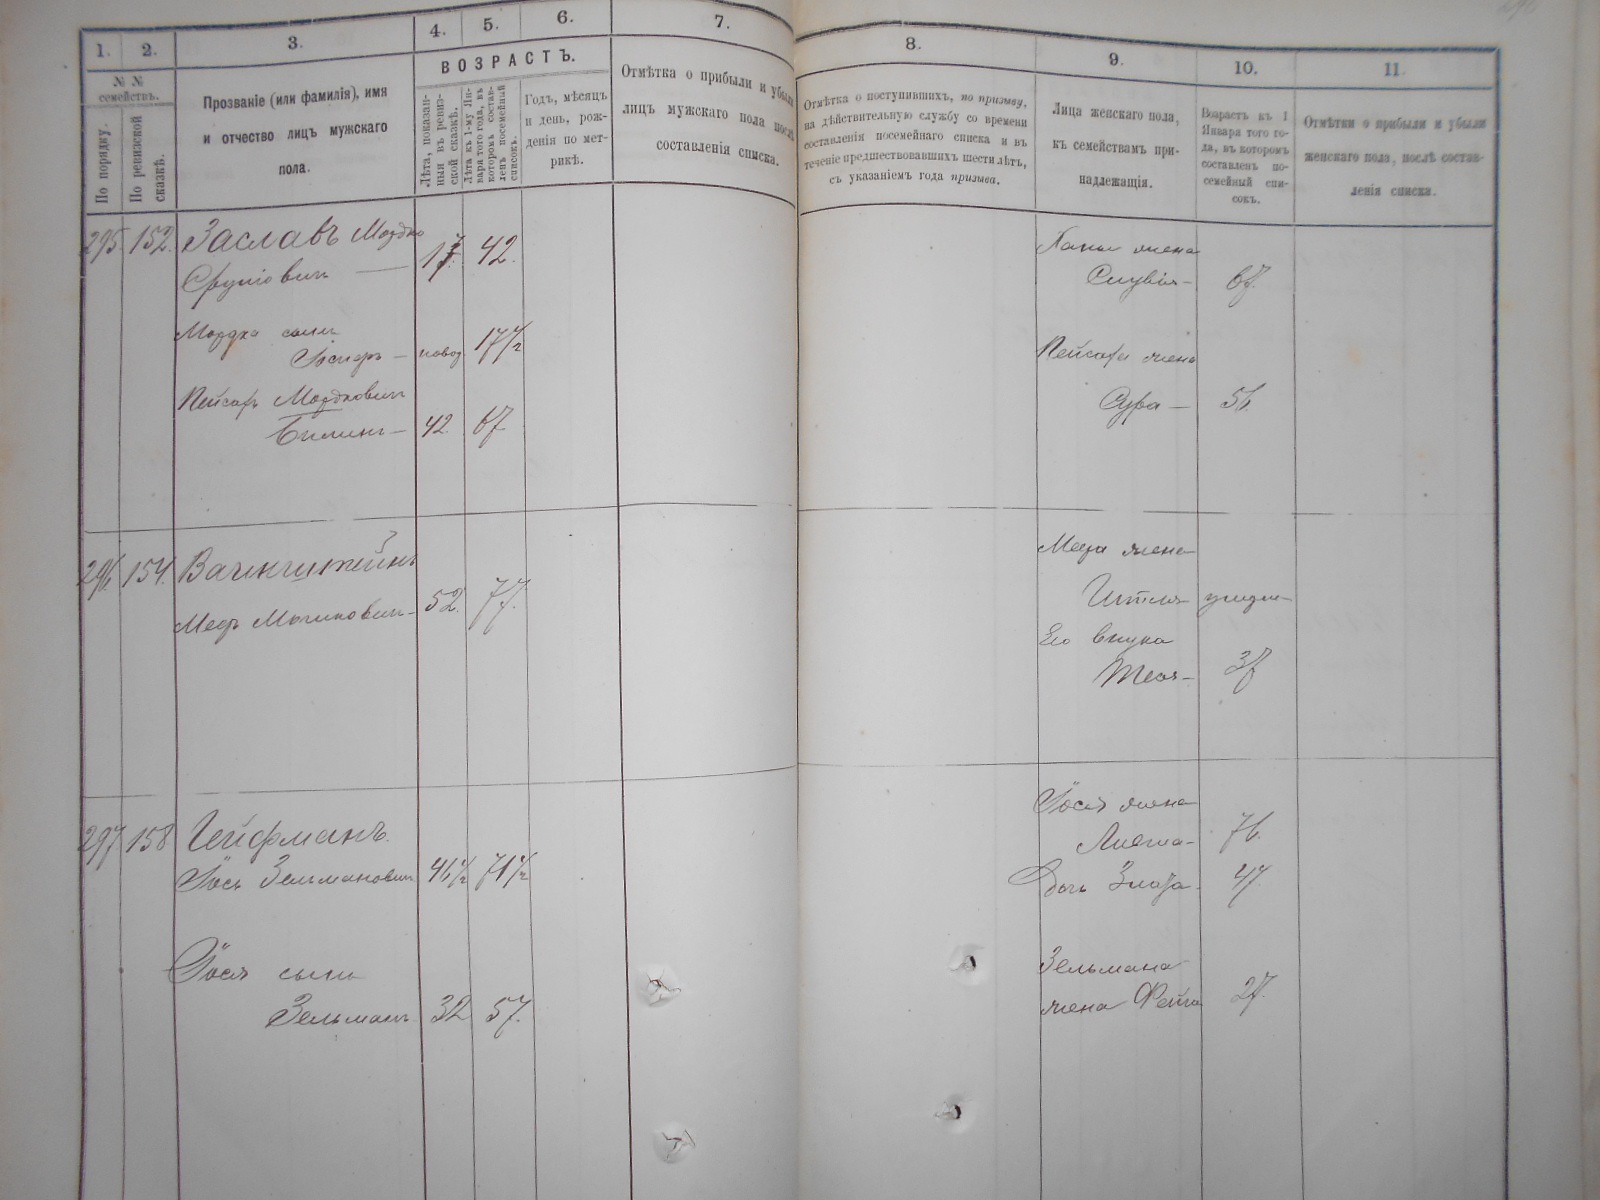 1.
2.
3.
4.
5.
6.
7.
8.
9.
10.
11.
№ №
семействъ.
По порядку.
По ревизской
сказкѣ.
Прозваніе (или фамилія), имя
и отчество лицъ мужскаго
пола.
ВОЗРАСТЪ.
Лѣта, показан-
ныя въ ревиз-
ской сказкѣ.
Лѣта къ 1-му Ян-
варя того года, въ
которомъ состав-
ленъ посемейный
списокъ.
Годъ, мѣсяцъ
и день, рож-
денія по мет-
рикѣ.
Отмѣтка о прибыли и убыли
лицъ мужскаго пола послѣ
составленія списка.
Отмѣтка о поступившихъ, по призыву,
на дѣйствительную службу со времени
составленія посемейнаго списка и въ
теченіе предшествовавшихъ шести лѣтъ,
съ указаніемъ года призыва.
Лица женскаго пола,
къ семействамъ при-
надлежащія.
Возрастъ къ 1
Января того го-
да, въ которомъ
составленъ по-
семейный спи-
сокъ.
Отмѣтки о прибыли и убыли
женскаго пола, послѣ состав-
ленія списка.
295. 152. Заславъ Мордко
Сруліовичъ — 17. 42.
жена
67.
Мордка сынъ
— новор. 17 1/2
Пейсаха жена
Сура — 56.
Пейсахъ Мордковичъ
42. 67
296. 154. Вайнштейнъ
52. 77.
жена
Его внука
37
297 158 Гейфманъ.
Іось Зельмановичъ 46 1/2 71 1/2
Іося жена
76.
Дочь Злата 47.
Іося сынъ
Зельманъ 32 57.
Зельмана
жена Фейга 27.